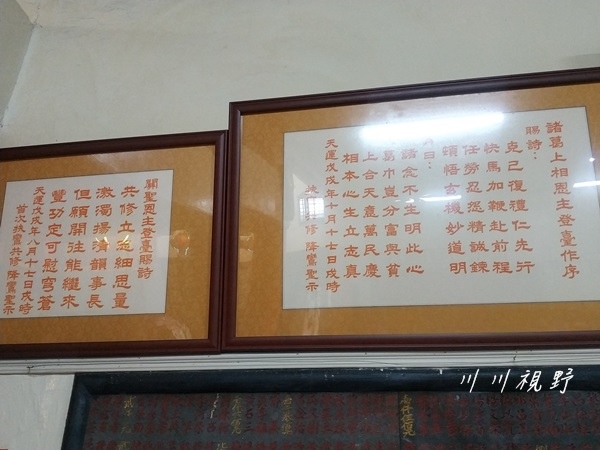 諸葛上相恩主登臺作序
賜詩：
克己復禮仁先行
快馬加鞭赴前程
任勞忍怨精誠鍊
頓悟玄機妙道明
曰：
諸念不生明此心
葛巾豈分富與貧
上合天意萬民慶
相本心生立志真
天運戊戌年十月十七日戌時
修 降鸞聖示
關聖恩主登臺賜詩
共修立 細思量
激濁揚清韻事長
但願開往能繼來
豐功定可慰穹蒼
天運戊戌年八月十七日戌時
首次扶鸞共修 降鸞聖示
川川視野